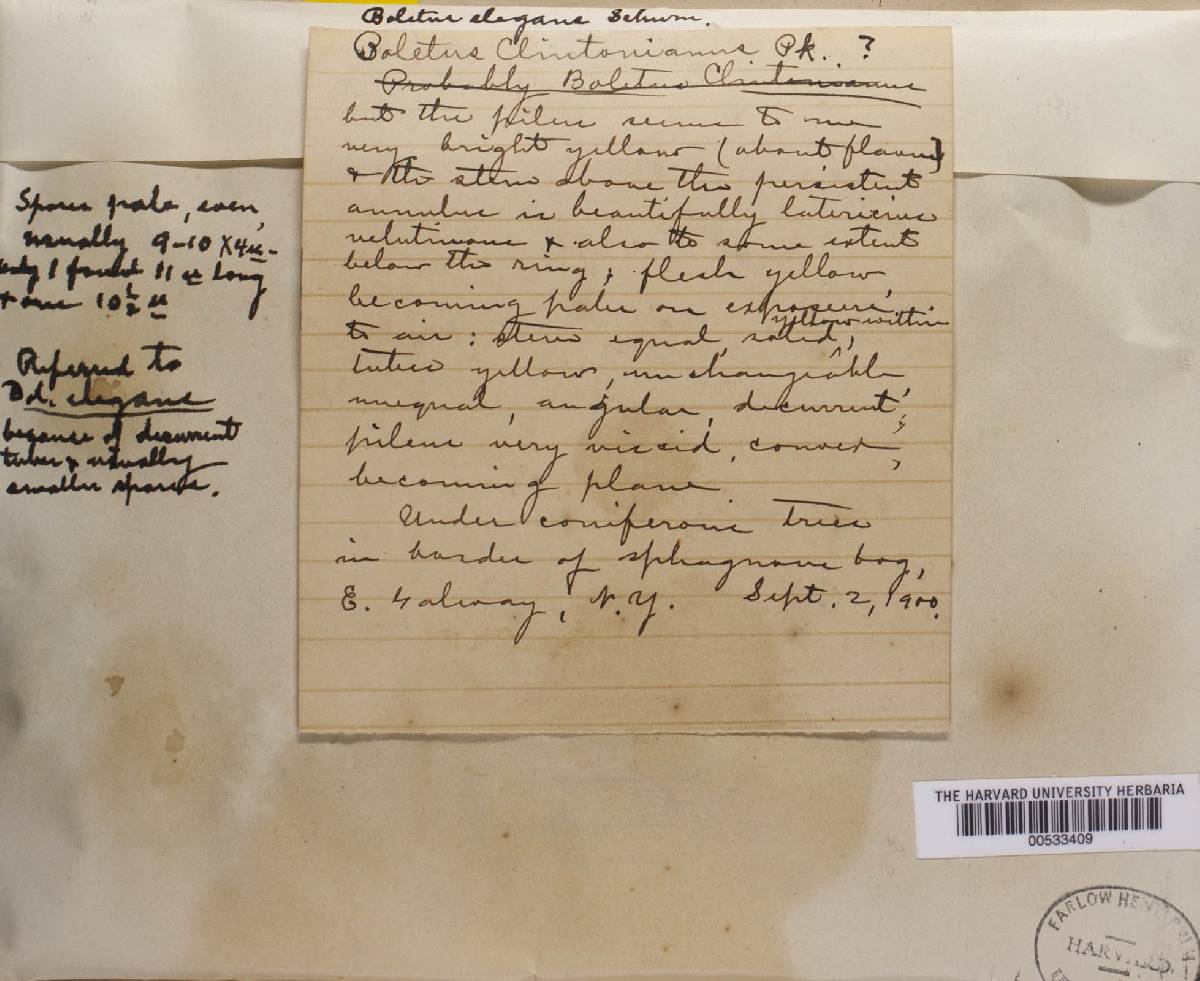 Boletus elegans Schum.
Boletus Clintonianus Pk. ?
Probably Boletus Clintonianus
but the pileus seems to me
very bright yellow (about flavus)
& the stem above the persistent
annulus is beautifully latericius
velutinous & also to some extent
below the ring; flesh yellow
becoming paler on exposure
to air: stem equal, solid, yellow within
tubes yellow, unchangeable,
unequal, angular, decurrent;
pileus very viscid, convex,
becoming plane.
Under coniferous trees
in border of sphagnous bog,
E. Galway, N.Y. Sept. 2, 1900.
Spores pale, even,
usually 9-10 X 4 µ-
only 1 found 11 µ long
& one 10 1/2 µ
Referred to
Bol. elegans
because of decurrent
tubes & usually
smaller spores.
THE HARVARD UNIVERSITY HERBARIA
00533409
FARLOW
HARVARD